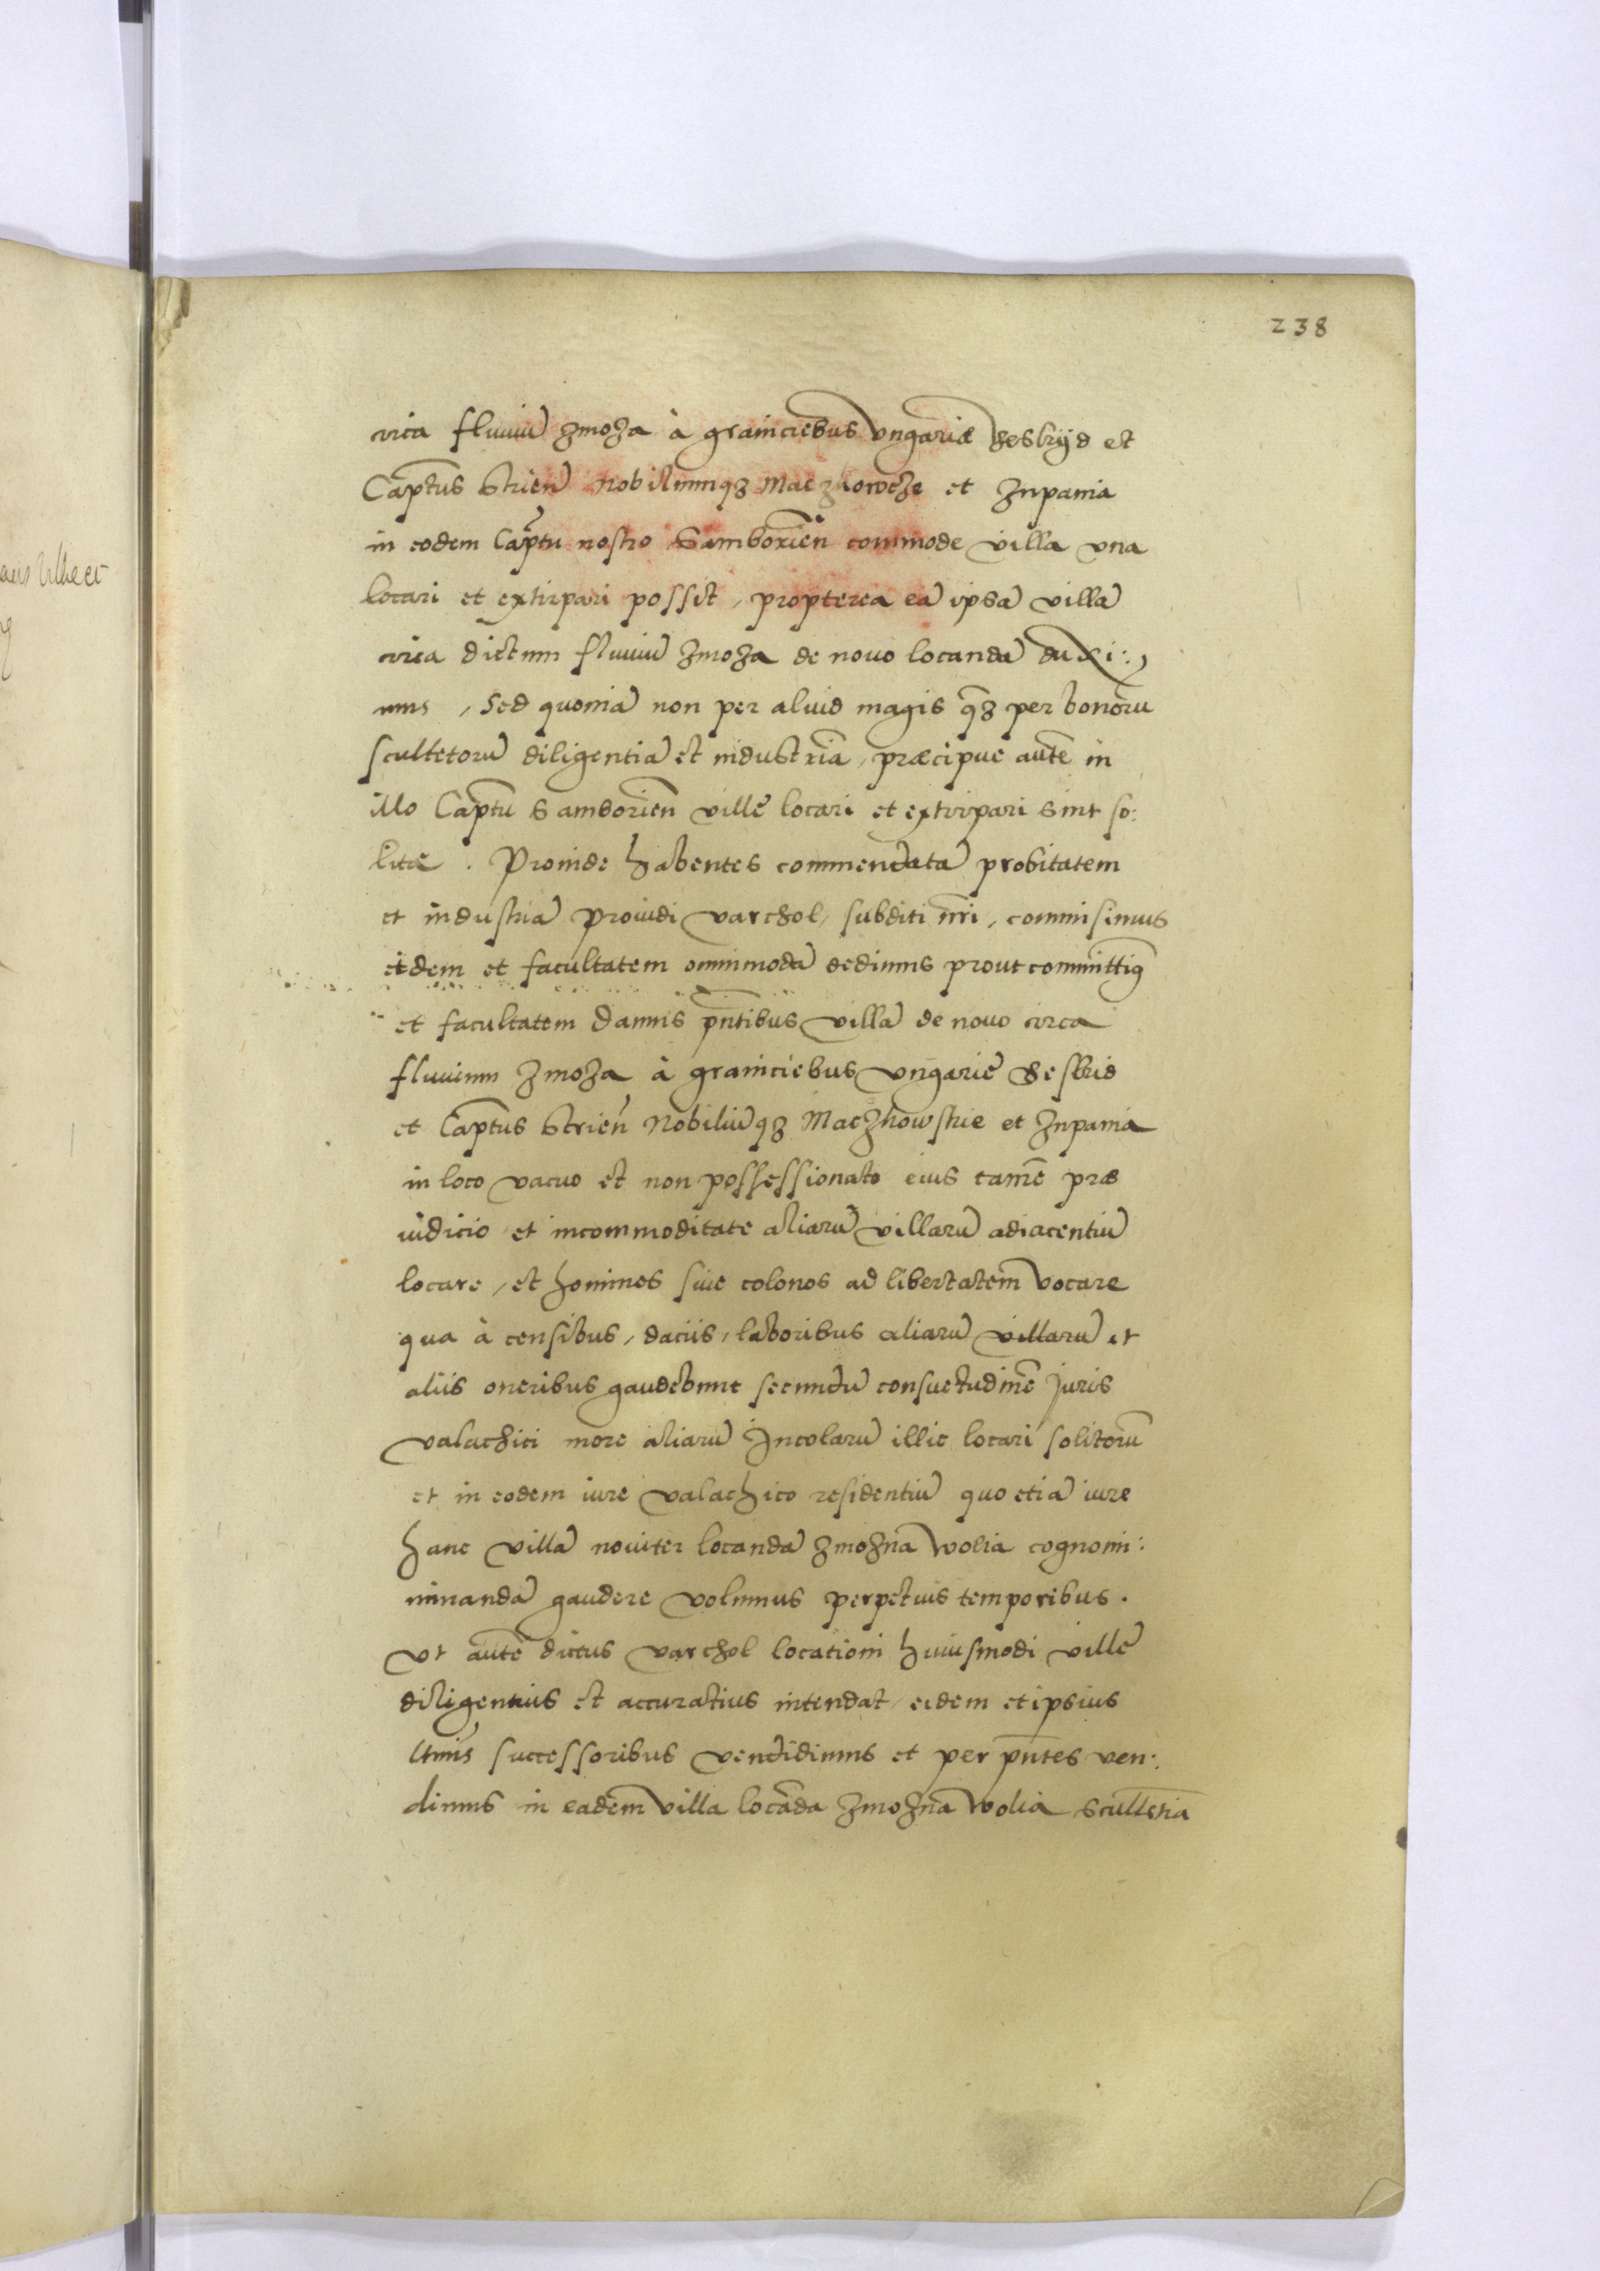 238
circa fluuiũ Zmoza à grainciebus Vngariæ Besbijd et
Capt̃us Strień Nobiliumq₃ et Zupania
in eodem Capt̃u nostro Samborień commode villa vna
locari et extirpari possit, propterea eã ipsã villã
circa dictum fluuiũ Zmoza de nouo locandã duxi:,
mus, Sed quoniã non per aliud magis q̃₃ per bonorũ
scultetorũ diligentiã et industriã, præcipue autẽ in
illo Capt̃u Samborień villẽ locari et extirpari sint so:
litæ. Proinde habentes commendatã probitatem
et industriã prouidi Varchol, subditi nr̃i, commisimus
eidem et facultatem omnimodã dedimus prout committimꝯ
et facultatem damus pñtibus villã de nouo circa
fluuium Zmoza à grainciebus Vngariẽ Besbid
et Capt̃us Strień Nobiliũq₃ Maczkowskie et Zupania
in loco vacuo et non possessionato eius tamẽ præ
iudicio et incommoditate aliarũ villarũ adiacentiũ
locare, et homines siue colonos ad libertatem̃ vocare
qua à censibus, daciis, laboribus aliarũ villarũ et
aliis oneribus gaudebunt secundũ consuetudinẽ Juris
valachici more aliarũ Incolarũ illic locari solitorũ
et in eodem iure valachico residentiũ quo etiã iure
hanc villã nouiter locandã Zmoznã Wolia cognomi:
minandã gaudere volumus perpetuis temporibus.
Vt autẽ dictus Varchol locationi huiusmodi villẽ
diligentius et accuratius intendat, eidem et ipsius
ltimis successoribus vendidimus et per pñtes ven:
dimus in eadem̃ villa locãda Zmoznã Wolia scultetiã